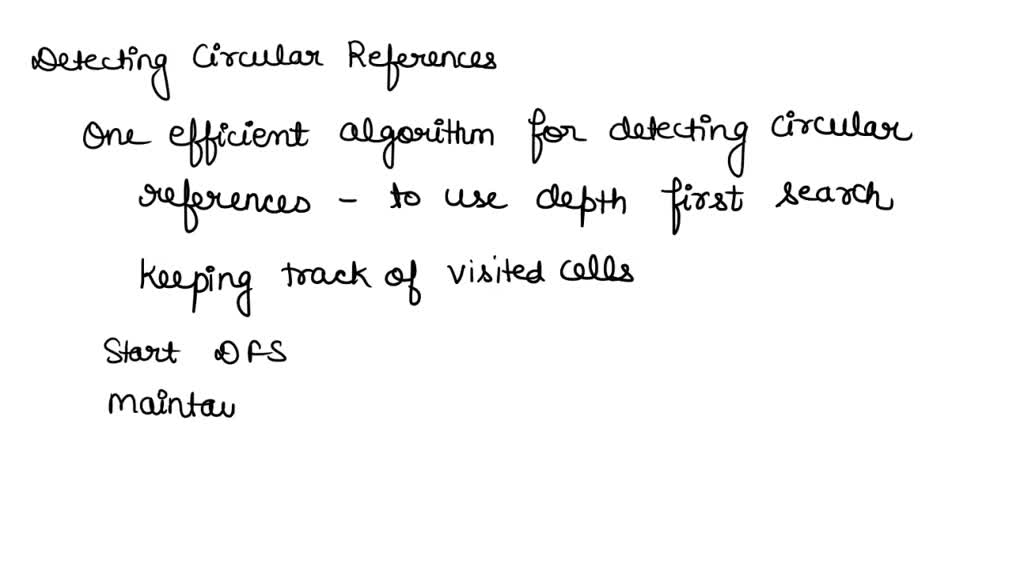 Detecting Circular References
One efficient algorithm for detecting circular
references - to use depth first search
Keeping track of visited cells
Start DFS
Maintai